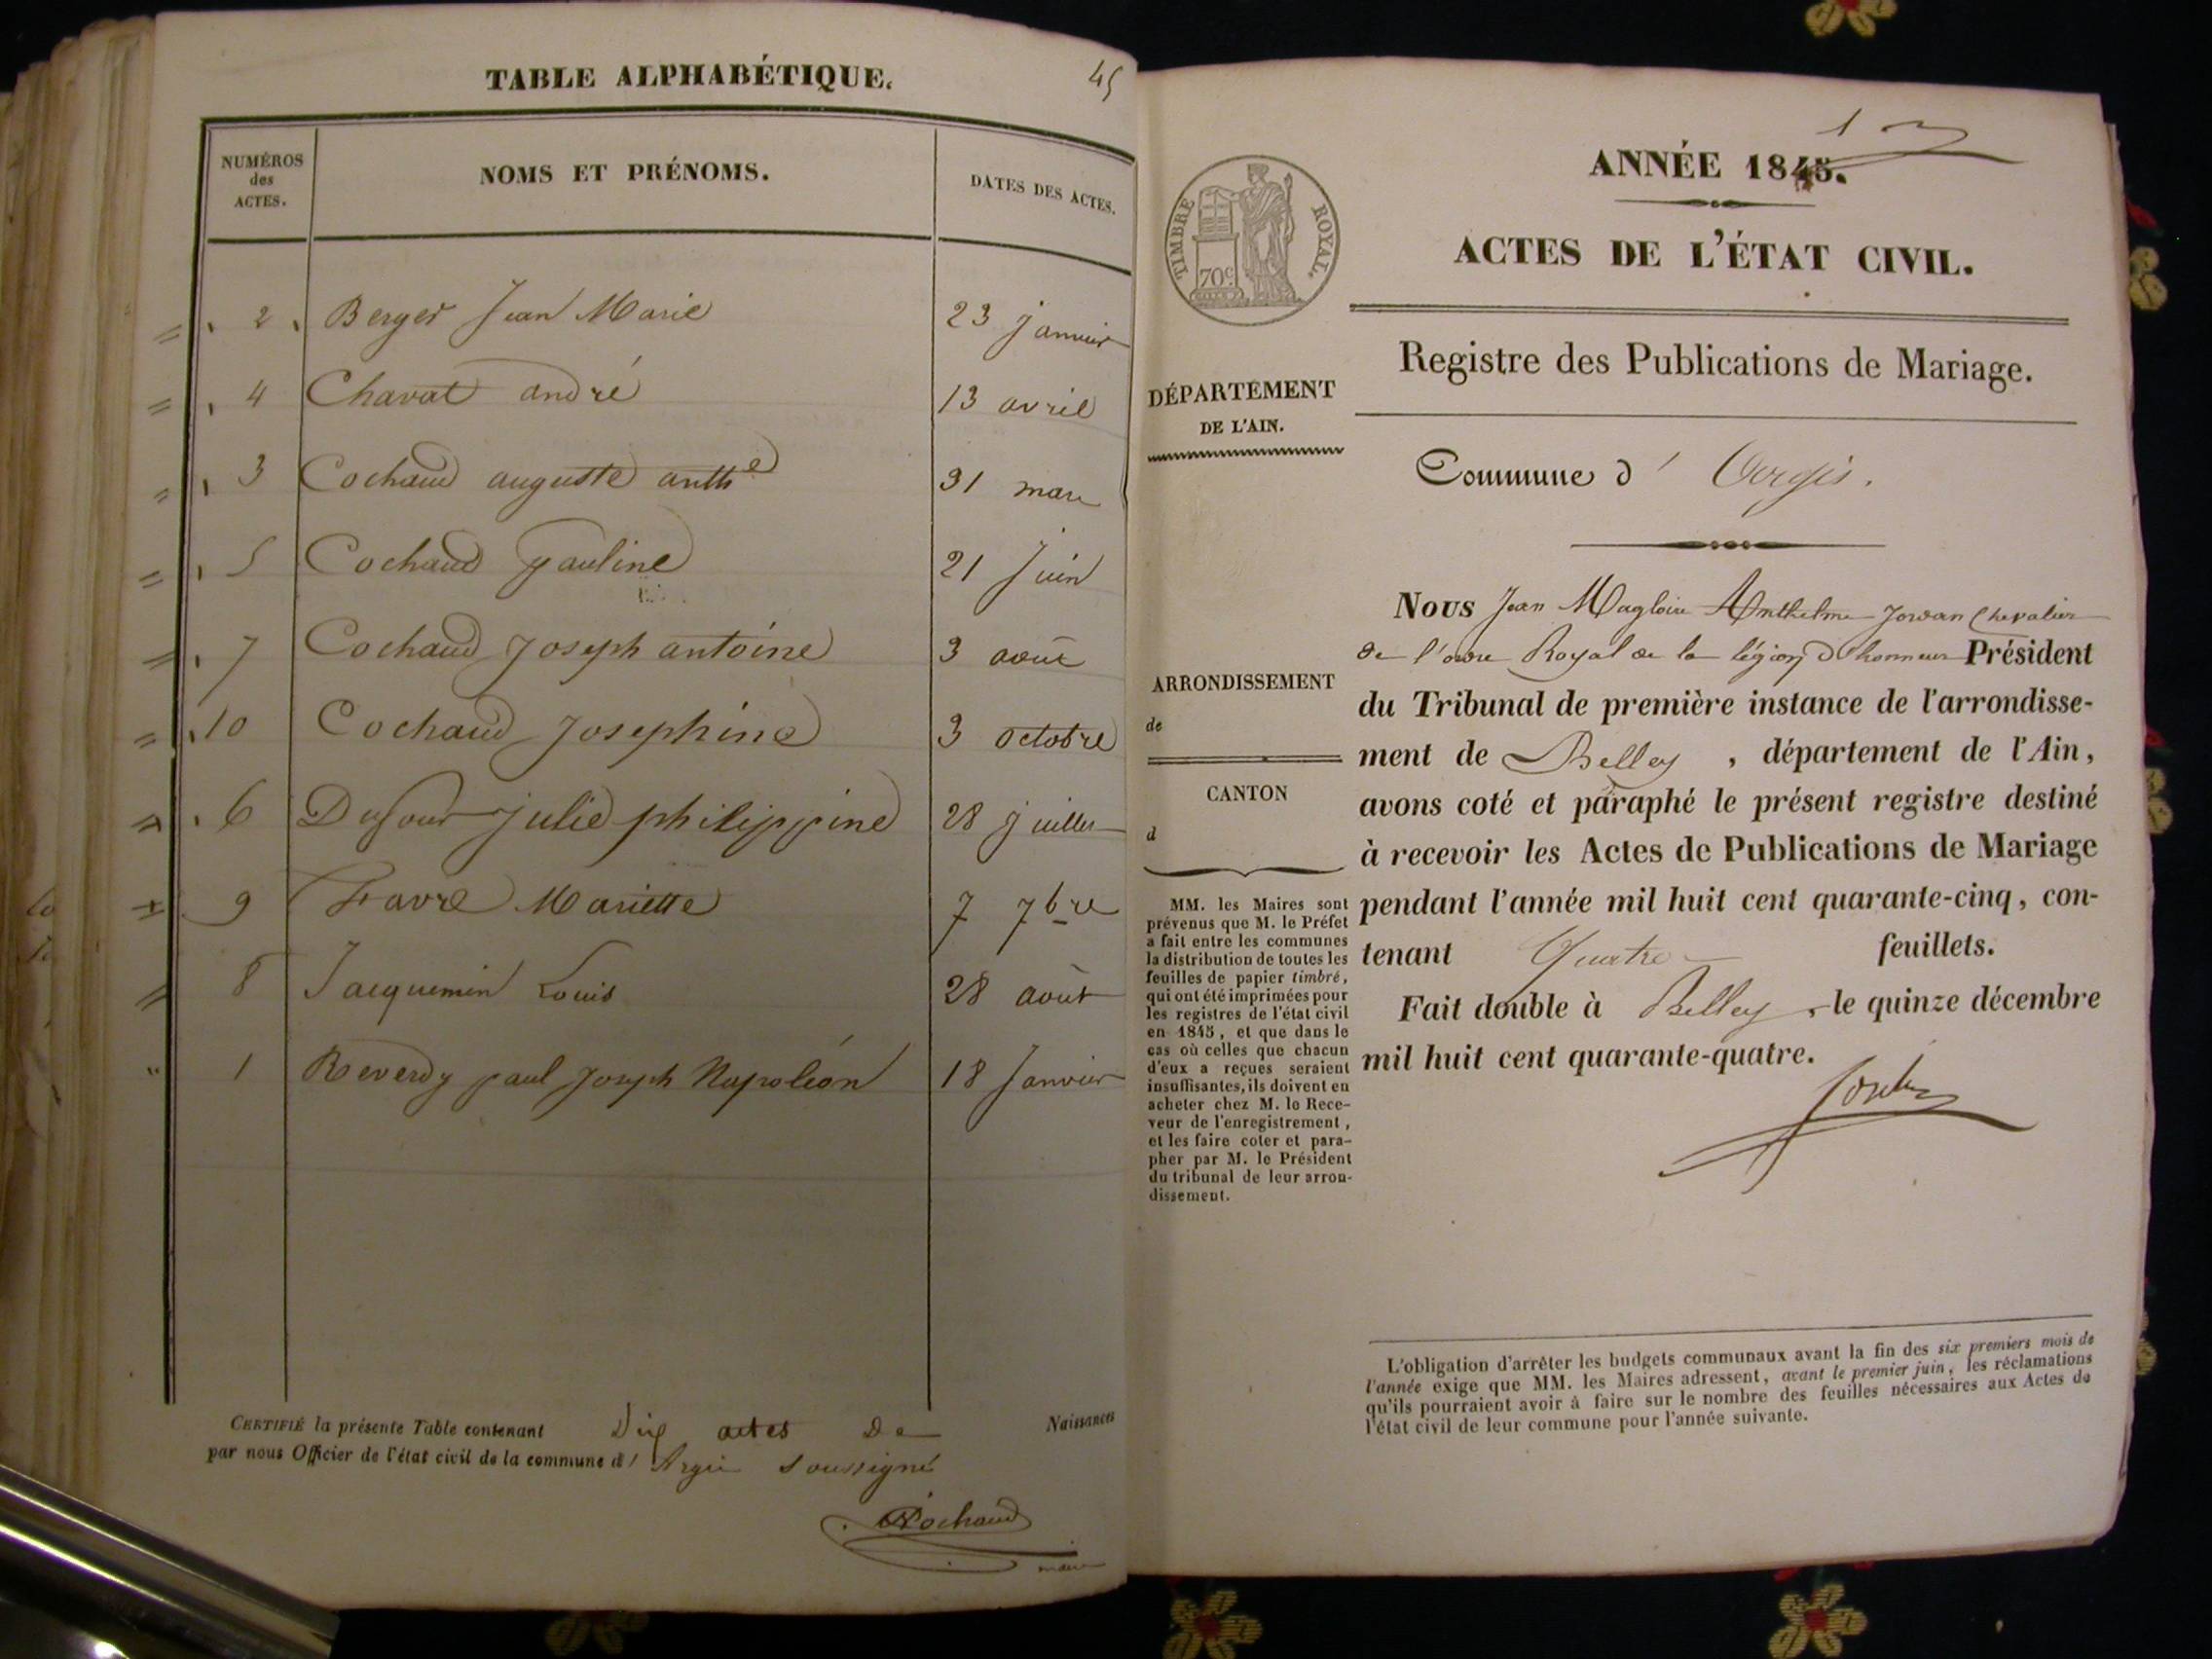 TABLE ALPHABÉTIQUE.
45
NUMÉROS
des
ACTES.
NOMS ET PRÉNOMS.
DATES DES ACTES.
2 Berger Jean Marie 23 janvier
4 Chavat andré 13 avril
3 Cochaud auguste anthe 31 mars
5 Cochaud pauline 21 Juin
7 Cochaud Joseph antoine 3 août
10 Cochaud Josephine 3 octobre
6 Dufour julie philippine 28 juillet
9 Favre Mariette 7 7bre
8 Jacquemin Louis 28 août
1 Reverdy paul Joseph Napoléon 18 Janvier
CERTIFIÉ la présente Table contenant Dix actes De Naissances
par nous Officier de l'état civil de la commune d' Argis soussigné
Cochaud
maire
1
ANNÉE 1845.
ACTES DE L'ÉTAT CIVIL.
TIMBRE ROYAL.
70c
Registre des Publications de Mariage.
DÉPARTEMENT
DE L'AIN.
Commune d' Argis.
ARRONDISSEMENT
de
CANTON
d
MM. les Maires sont
prévenus que M. le Préfet
a fait entre les communes
la distribution de toutes les
feuilles de papier timbré,
qui ont été imprimées pour
les registres de l'état civil
en 1845, et que dans le
cas où celles que chacun
d'eux a reçues seraient
insuffisantes, ils doivent en
acheter chez M. le Rece-
veur de l'enregistrement,
et les faire coter et para-
pher par M. le Président
du tribunal de leur arron-
dissement.
Nous Jean Magloire Anthelme Jordan Chevalier
de l'ordre Royal de la légion d'honneur Président
du Tribunal de première instance de l'arrondisse-
ment de Belley, département de l'Ain,
avons coté et paraphé le présent registre destiné
à recevoir les Actes de Publications de Mariage
pendant l'année mil huit cent quarante-cinq, con-
tenant Quatre feuillets.
Fait double à Belley, le quinze décembre
mil huit cent quarante-quatre.
L'obligation d'arrêter les budgets communaux avant la fin des six premiers mois de
l'année exige que MM. les Maires adressent, avant le premier juin, les réclamations
qu'ils pourraient avoir à faire sur le nombre des feuilles nécessaires aux Actes de
l'état civil de leur commune pour l'année suivante.